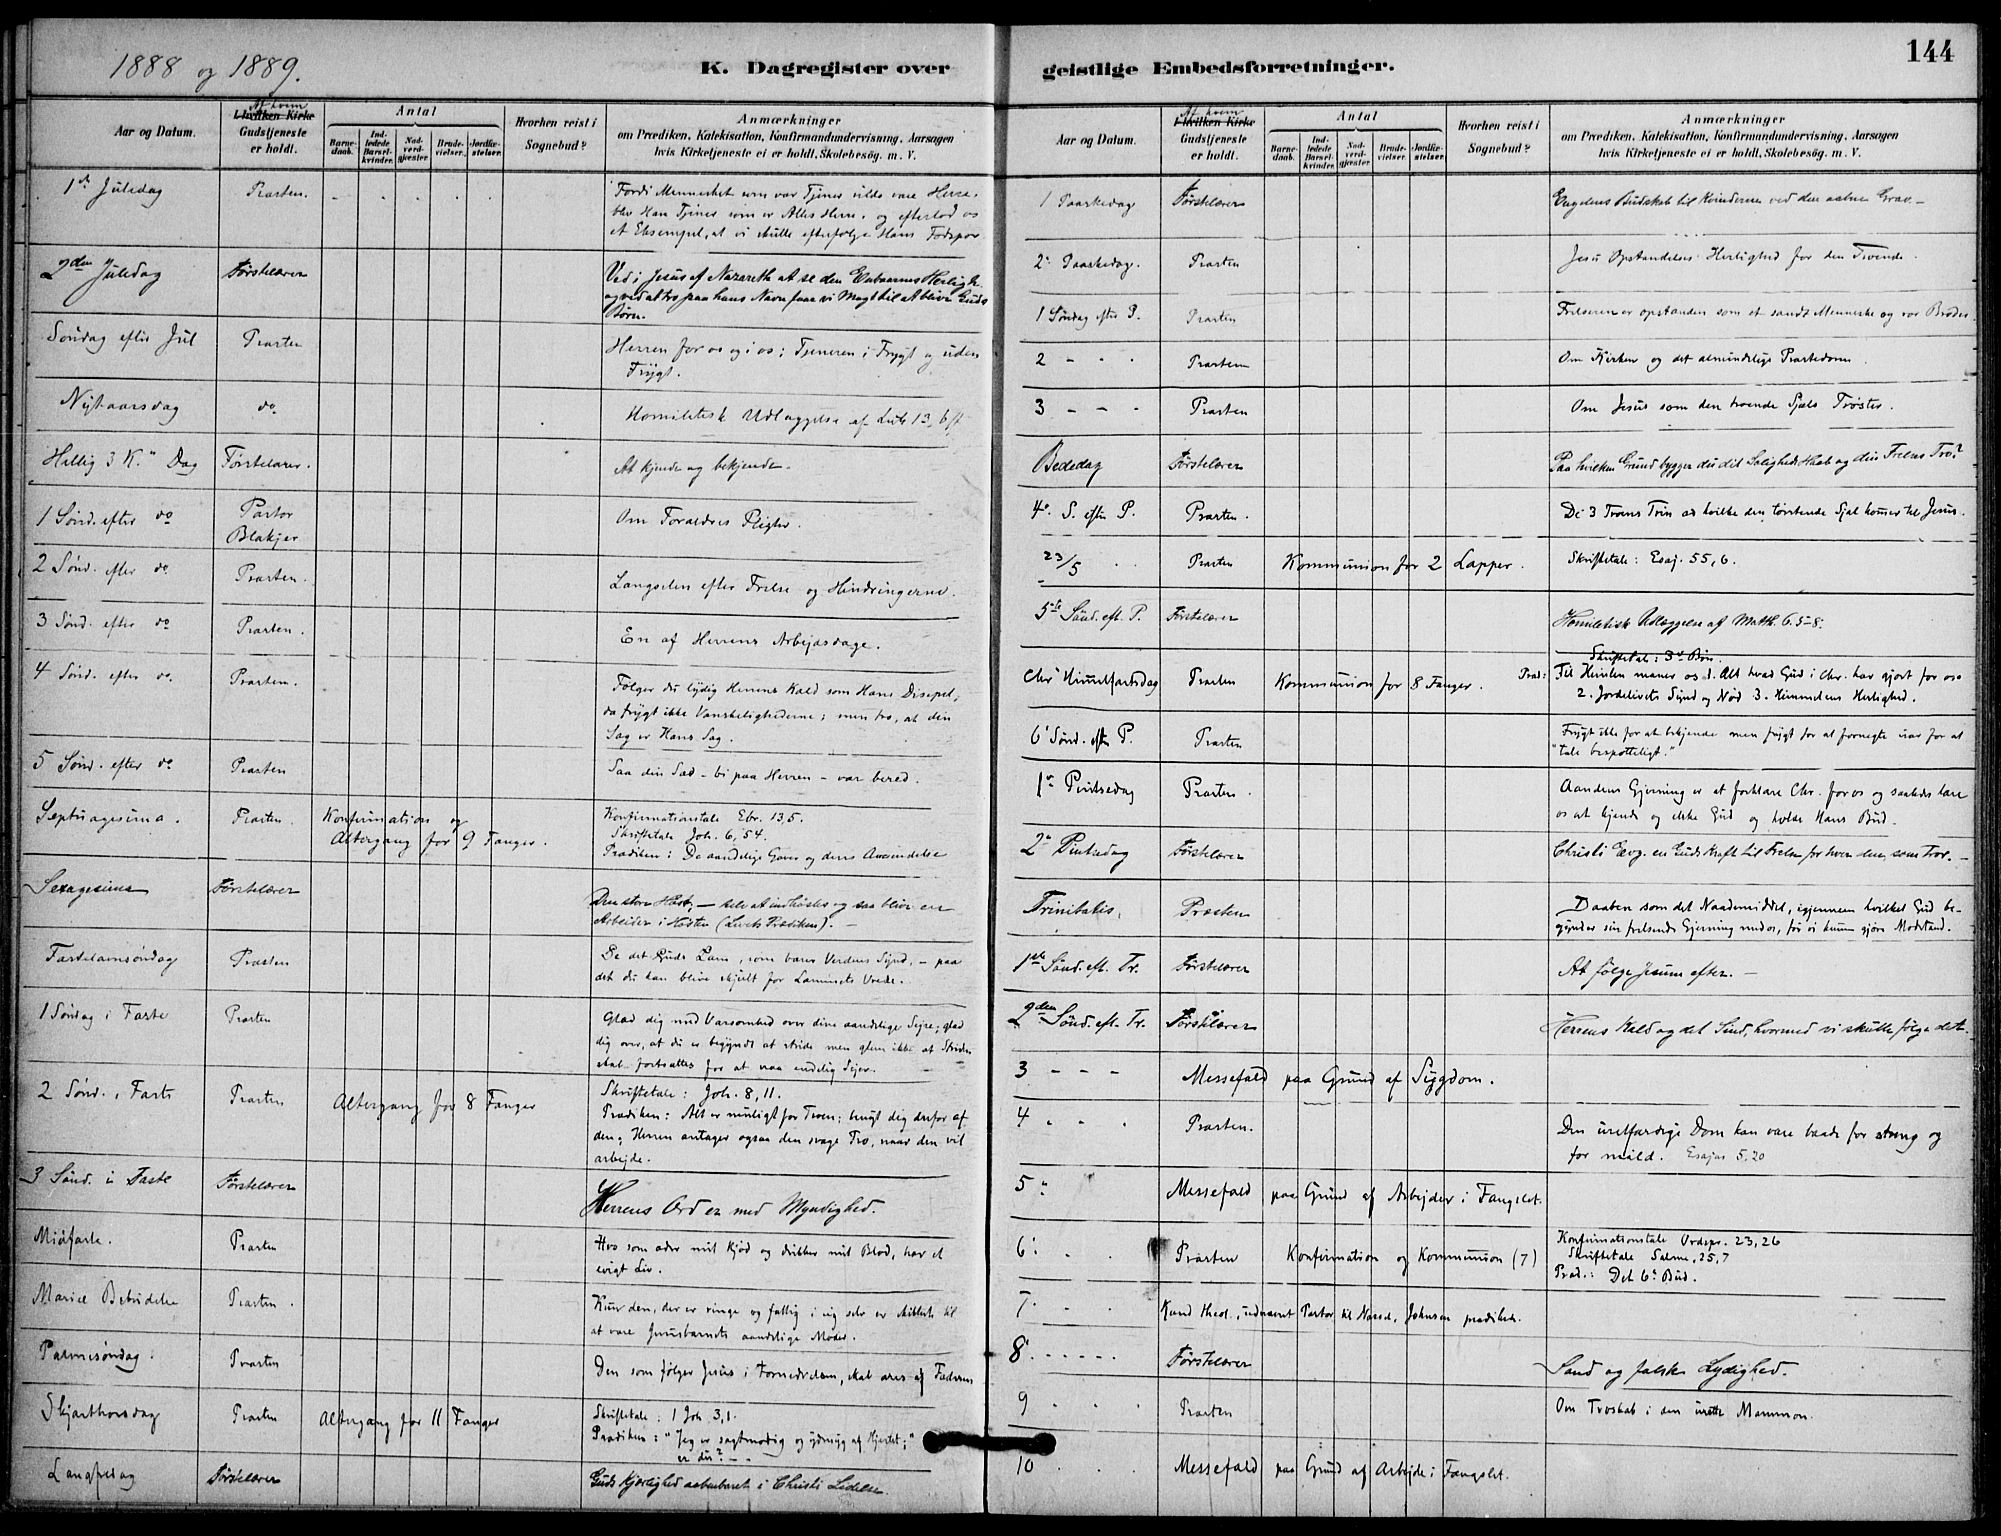 1888 og 1889.
K. Dagregister over
geistlige Embedsforretninger.
144
Aar og Datum.
Af hvem
I hvilken Kirke
Gudstjeneste
er holdt.
Antal
Barne-
daab.
Ind-
ledede
Barsel-
kvinder.
Nad-
verd-
gjæster.
Brude-
vielser.
Jordfæ-
stelser.
Hvorhen reist i
Sognebud?
Anmærkninger
om Prædiken, Katekisation, Konfirmandundervisning, Aarsagen
hvis Kirketjeneste ei er holdt, Skolebesøg. m. V.
1ste Juledag Præsten.
Fordi Mennesket som var Tjener vilde være Herre,
blev Han Tjener som er Alles Herre, og efterlod os
et Eksempel, at vi skulle efterfølge Hans Fodspor
2den Juledag Førstelærer
Ved i Jesus af Nazareth at se den Enbaarnes Herligh.
og ved at tro paa hans Navn faar vi Magt til at blive Guds
Børn.
Søndag efter Jul Præsten
Herren for os og i os; Tjeneren i Frygt og uden
Frygt.
Nytaarsdag do
Homiletisk Udlæggelse af Luk 13, 6 ff
Hellig 3 K." Dag Førstelærer.
At kjende og bekjende.
1 Sønd. efter do Pastor
Blakjer
Om Forældres Pligter.
2 Sønd. efter do Præsten.
Længselen efter Frelse og Hindringerne.
3 Sønd. efter do Præsten.
En af Herrens Arbejdsdage.
4 Sønd. efter do. Præsten.
Følger du lydig Herrens Kald som Hans Discipel,
da frygt ikke Vanskelighederne; men tro, at din
Sag er Hans Sag.
5 Sønd. efter do Præsten
Saa din Sæd - bi paa Herren - vær bered.
Septuagesima. Præsten. Konfirmation og
Altergang for 9 Fanger.
Konfirmationstale Ebr. 13,5.
Skriftetale Joh. 6, 54.
Prædiken: De aandelige Gaver og deres Anvendelse
Sexagesima Førstelærer
Den store Høst, — selv at indhøstes og saa blive en
Arbeider i Høsten (Luk's Prædiken). —
Fastelavnsøndag Præsten
Se det Guds Lam, som bærer Verdens Synd, - paa
det du kan blive skjult for Lammets Vrede.
1 Søndag i Faste Præsten
Glæd dig med Varsomhed over dine aandelige Sejre; glæd
dig over, at du er begyndt at stride men glem ikke at Striden
skal fortsættes for at naa endelig Sejer.
2 Sønd. i Faste Præsten Altergang for 8 Fanger
Skriftetale: Joh. 8, 11.
Prædiken: Alt er muligt for Troen; benyt dig derfor af
den; Herren antager ogsaa den svage Tro, naar den vil
arbejde.
3 Sønd. i Faste Førstelærer
Herrens Ord er med Myndighed.
Midfaste. Præsten
Hvo som æder mit Kjød og drikker mit Blod, har et
evigt Liv.
Mariæ Bebudelse Præsten.
Kun den, der er ringe og fattig i sig selv er skikket til
at være Jesusbarnets aandelige Moder.
Palmesøndag. Præsten
Den som følger Jesus i Fornedrelsen, skal æres af Faderen
Skjærthorsdag Præsten Altergang for 11 Fanger
Skriftetale: 1 Joh 3,1.
Prædiken: "Jeg er sagtmodig og ydmyg af Hjertet;"
er du? - -
Langfredag Førstelærer
Guds Kjærlighed aabenbaret i Christi Lidelse.
Aar og Datum.
Af hvem
I hvilken Kirke
Gudstjeneste
er holdt.
Antal
Barne-
daab.
Ind-
ledede
Barsel-
kvinder.
Nad-
verd-
gjæster.
Brude-
vielser.
Jordfæ-
stelser.
Hvorhen reist i
Sognebud?
Anmærkninger
om Prædiken, Katekisation, Konfirmandundervisning, Aarsagen
hvis Kirketjeneste ei er holdt, Skolebesøg. m. V.
1 Paaskedag Førstelærer
Engelens Budskab til Kvinderne ved den aabne Grav. -
2. Paaskedag. Præsten
Jesu Opstandelses Herlighed for den Troende.
1 Søndag efter P. Præsten
Frelseren er opstanden som et sandt Menneske og vor Broder.
2 - - - Præsten
Om Kirken og det almindelige Præstedømme.
3 - - - Præsten
Om Jesus som den troende Sjæls Trøster.
Bededag Førstelærer
Paa hvilken Grund bygger du dit Saligheds Haab og din Frelses Tro?
4. S. efter P. Præsten.
De 3 Troens Trin ad hvilke den tørstende Sjæl kommer til Jesus.
23/5 Præsten Kommunion for 2 Lapper.
Skriftetale: Esaj. 55, 6.
5te Sønd. eft. P. Førstelærer
Homiletisk Udlæggelse af Matth. 6. 5-8.
Skriftetale: 3die Bøn.
Chr' Himmelfartsdag Præsten Kommunion for 8 Fanger.
Præd: Til Himlen maner os 1. Alt hvad Gud i Chr. har gjort for os
2. Jordelivets Synd og Nød 3. Himmelens Herlighed.
6' Sønd. eft P. Præsten
Frygt ikke for at bekjende men frygt for at fornegte især for at
"tale bespotteligt."
1ste Pintsedag Præsten.
Aandens Gjerning er at forklare Chr. for os og saaledes lære
os at kjende og elske Gud og holde Hans Bud.
2. Pintsedag Førstelærer
Christi Evg. en Guds Kraft til Frelse for hver den, som tror. -
Trinitatis. Præsten
Daaben som det Naademiddel, igjennem hvilket Gud be-
gynder sin frelsende Gjerning med os, før vi kunne gjøre Modstand.
1ste Sønd. eft. Tr. Førstelærer
At følge Jesum efter. -
2den Sønd. eft. Tr. Førstelærer
Herrens Kald og det Sind, hvormed vi skulle følge det.
3 - - - Messefald paa Grund af Sygdom.
4 . . . Præsten.
Den uretfærdige Dom kan være baade for streng og
for mild. Esajas 5.20
5. Messefald paa Grund af Arbejder i Fængslet.
6. . . Præsten Konfirmation og Kommunion (7)
Konfirmationstale Ordspr. 23, 26
Skriftetale Salme, 25, 7
Præd.: Det 6te Bud.
7. . . Kand theol., udnævnt Pastor til Næssd. Johnsen prædikede.
8. . . . . . Førstelærer
Sand og falsk Lydighed.
9 . . . Præsten
Om Troskab i den urette Mammon.
10 . . . Messefald paa Grund af Arbejde i Fængslet.